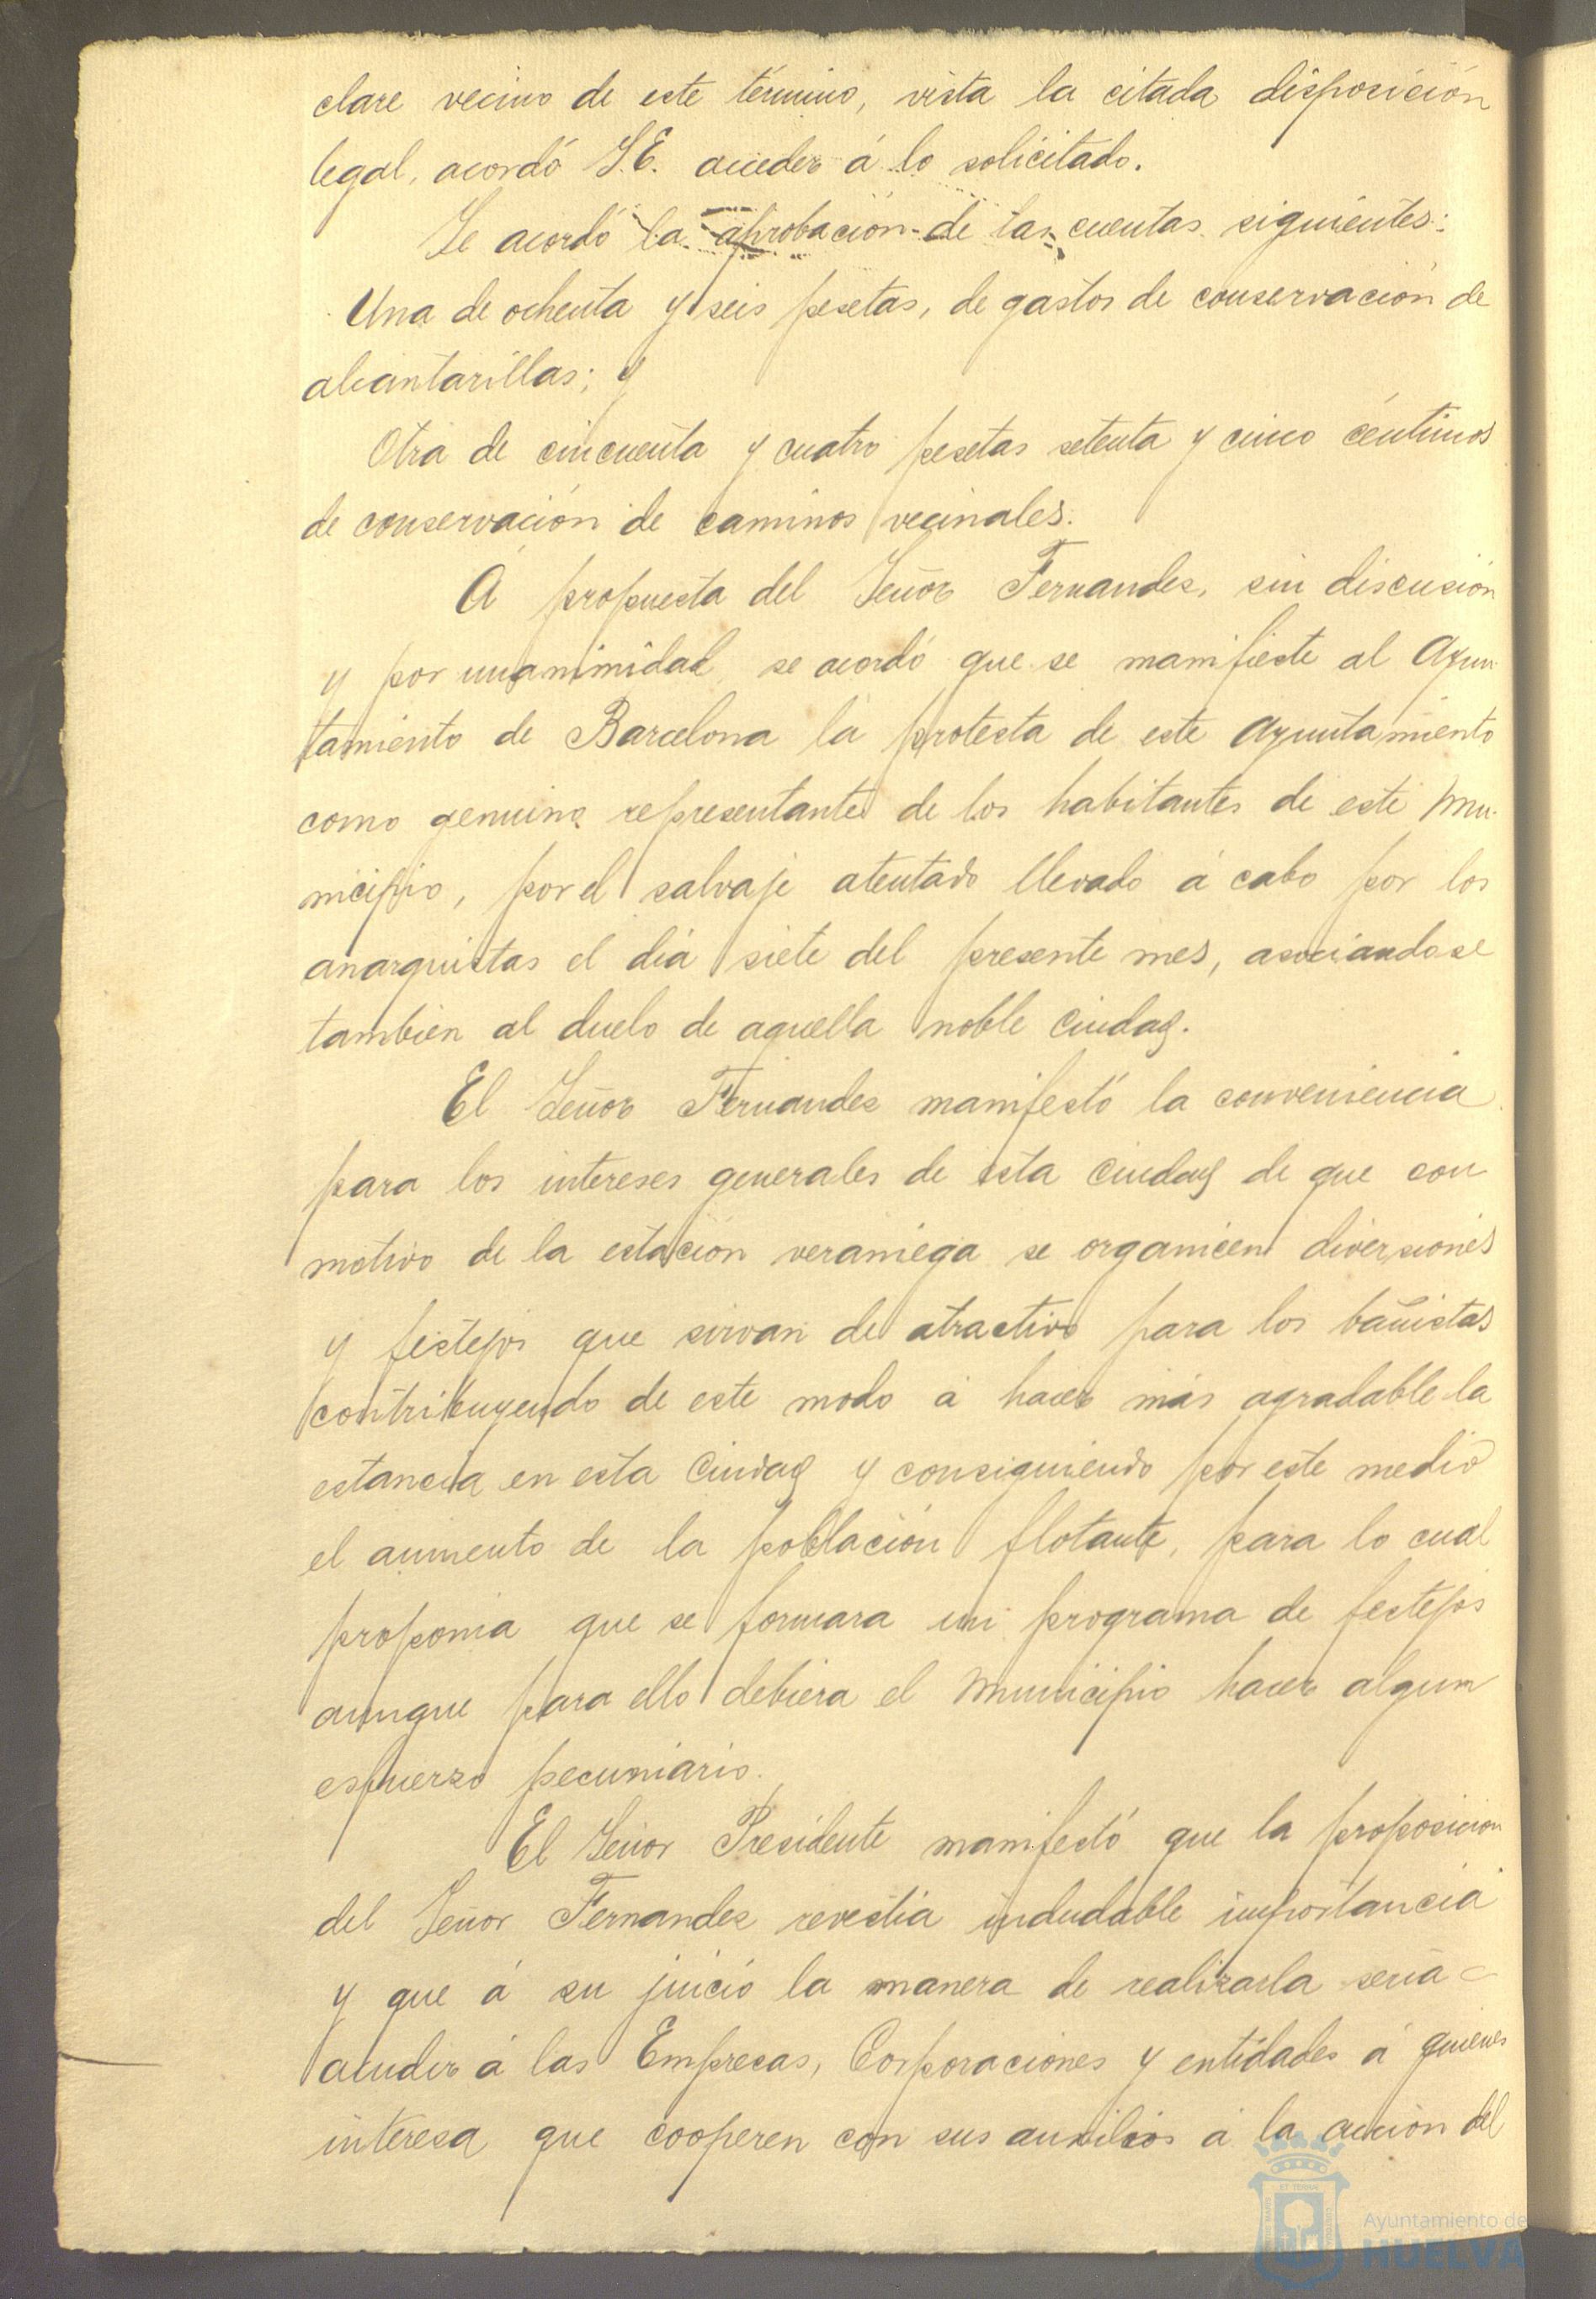 clare vecino de este término, vista la citada disposición
legal, acordó S.E. acceder á lo solicitado.
Se acordó la aprobación de las cuentas siguientes:
Una de ochenta y seis pesetas, de gastos de conservación de
alcantarillas; y
Otra de cincuenta y cuatro pesetas setenta y cinco céntimos
de conservación de caminos vecinales.
Á propuesta del Señor Fernandez, sin discusión
y por unanimidad se acordó que se manifieste al Ayun-
tamiento de Barcelona la protesta de este Ayuntamiento
como genuino representante de los habitantes de este Mu-
nicipio, por el salvaje atentado llevado á cabo por los
anarquistas el día siete del presente mes, asociandose
también al duelo de aquella noble Ciudad.
El Señor Fernandez manifestó la conveniencia
para los intereses generales de esta Ciudad de que con
motivo de la estación veraniega se organicen diversiones
y festejos que sirvan de atractivo para los bañistas
contribuyendo de este modo á hacer más agradable la
estancia en esta Ciudad y consiguiendo por este medio
el aumento de la población flotante, para lo cual
proponia que se formara un programa de festejos
aunque para ello debiera el Municipio hacer algun
esfuerzo pecuniario.
El Señor Presidente manifestó que la proposicion
del Señor Fernandez revestia indudable importancia
y que á su juicio la manera de realizarla sería
acudir á las Empresas, Corporaciones y entidades á quienes
interesa que cooperen con sus auxilios á la acción del
Ayuntamiento de
HUELVA